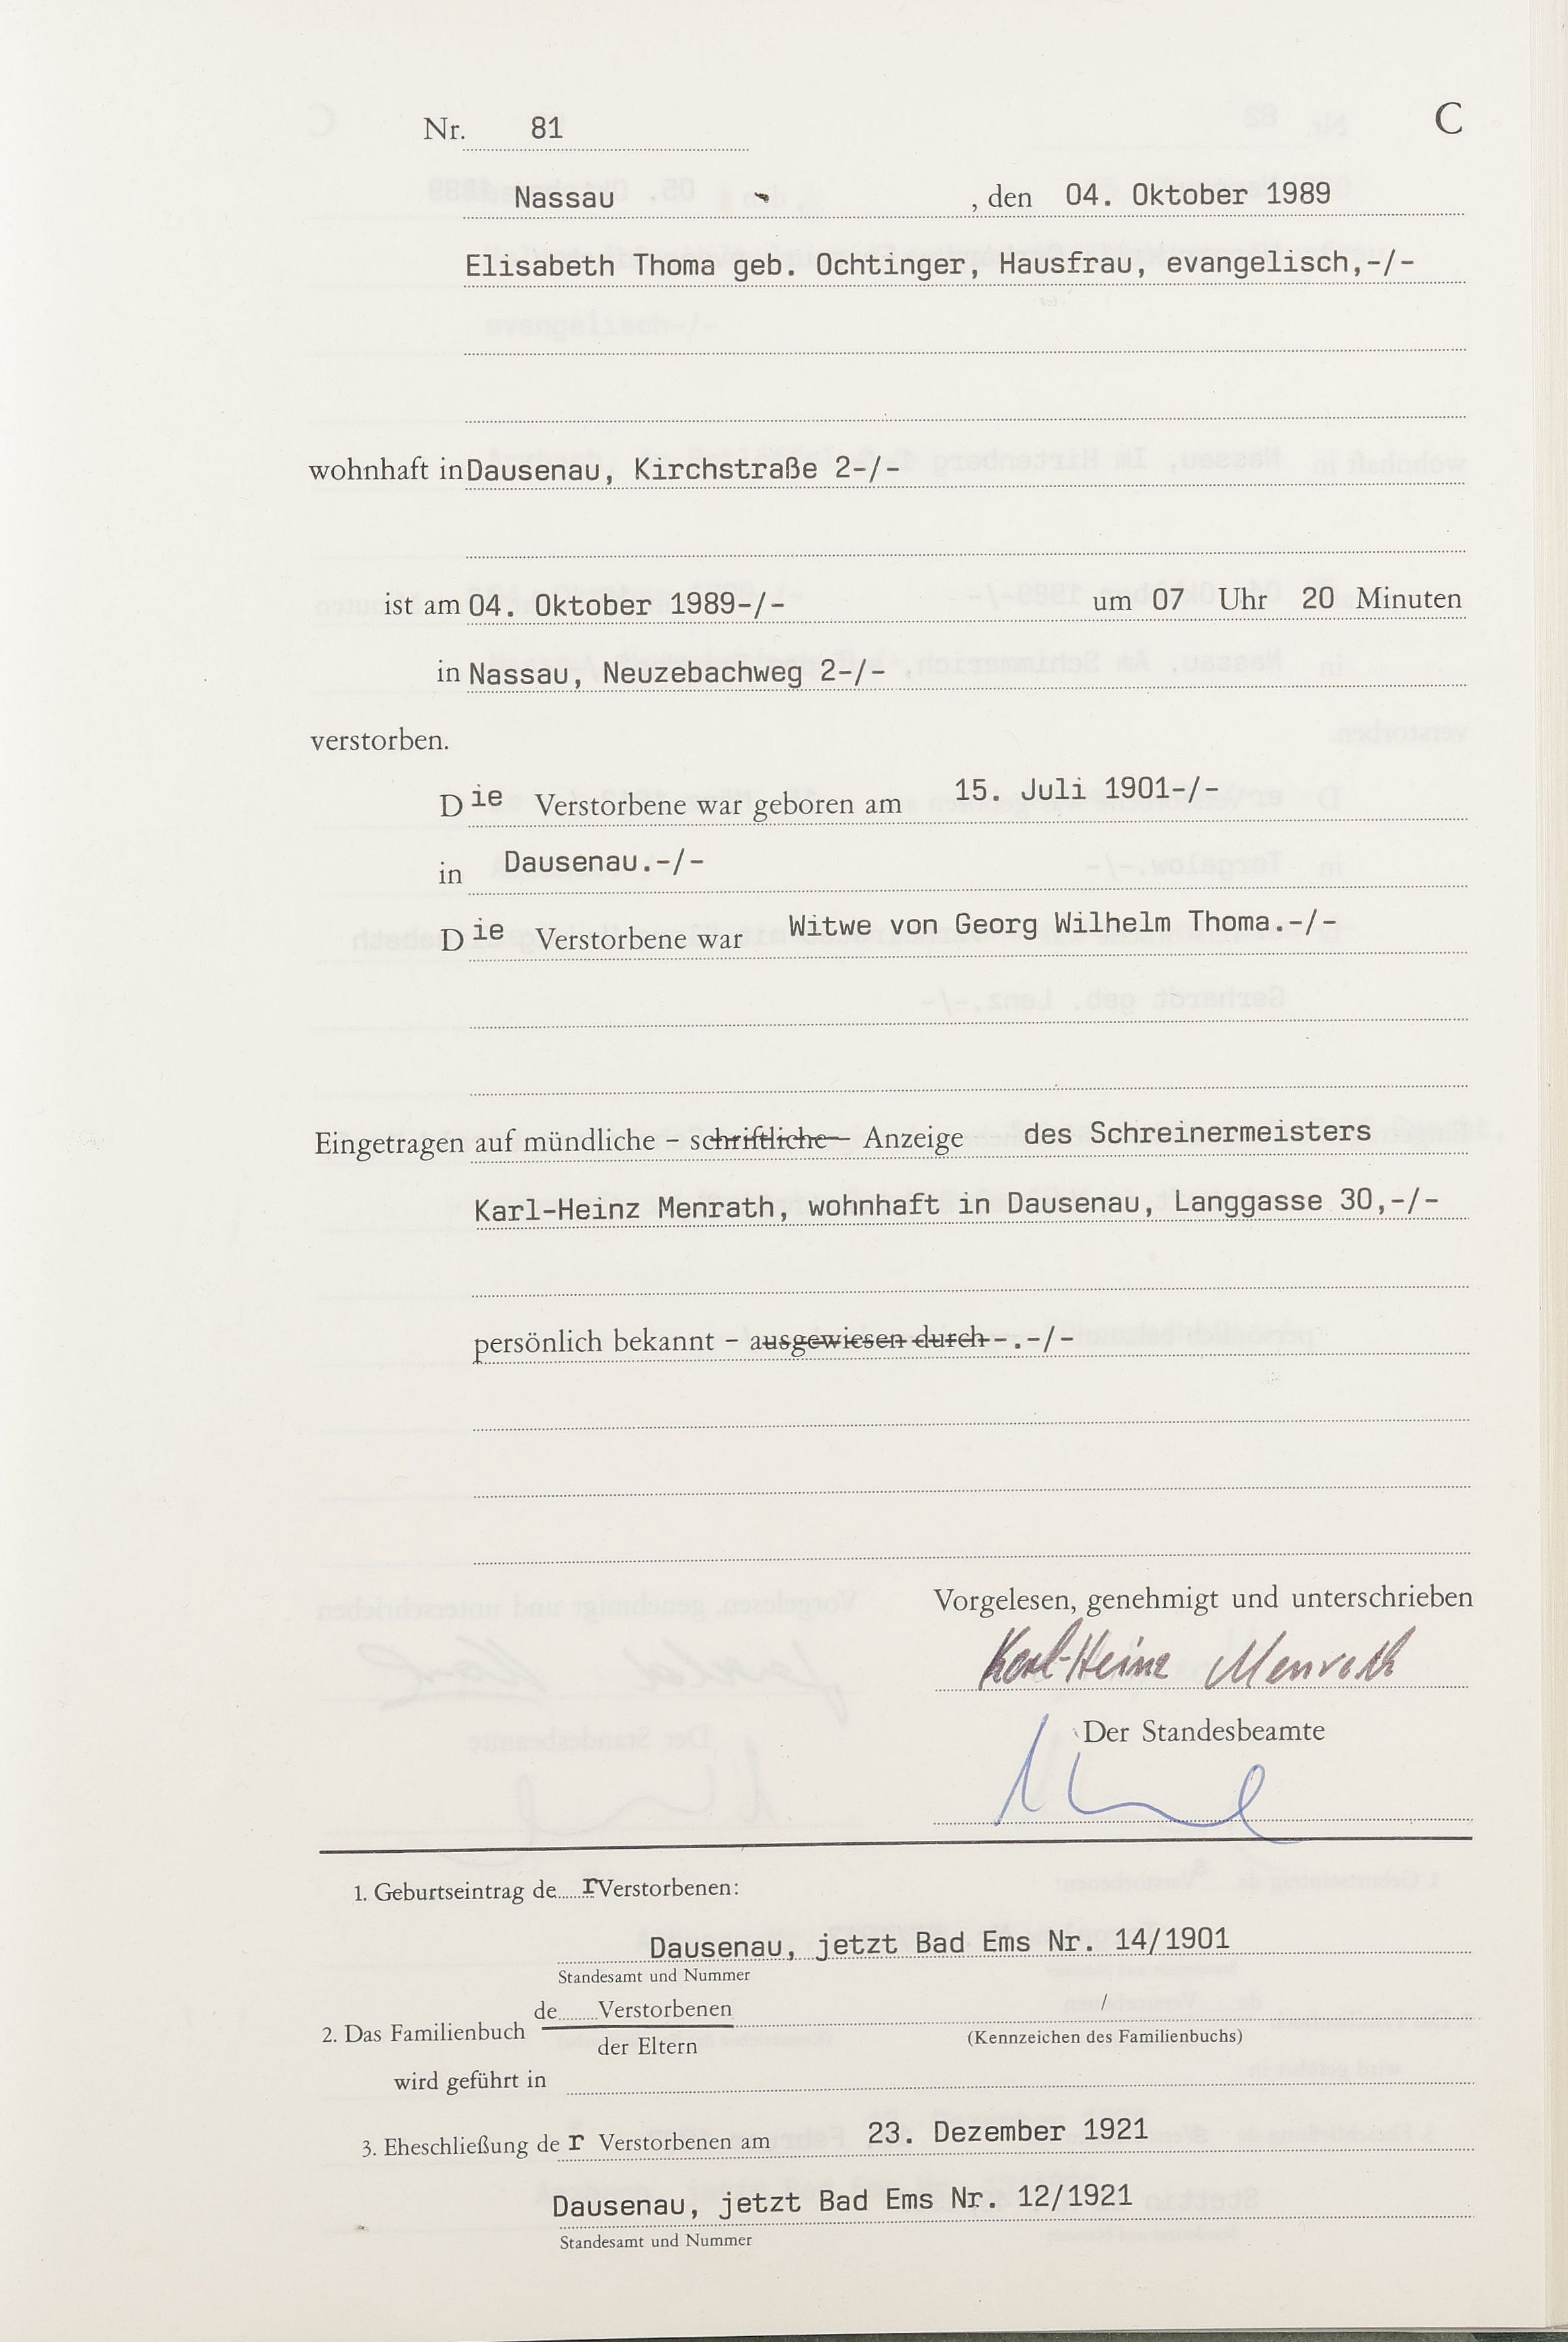 Nr. 81
C
Nassau , den 04. Oktober 1989
Elisabeth Thoma geb. Ochtinger, Hausfrau, evangelisch,-/-
wohnhaft in Dausenau, Kirchstraße 2-/-
ist am 04. Oktober 1989-/- um 07 Uhr 20 Minuten
in Nassau, Neuzebachweg 2-/-
verstorben.
Die Verstorbene war geboren am 15. Juli 1901-/-
in Dausenau.-/-
Die Verstorbene war Witwe von Georg Wilhelm Thoma.-/-
Eingetragen auf mündliche - schriftliche - Anzeige des Schreinermeisters
Karl-Heinz Menrath, wohnhaft in Dausenau, Langgasse 30,-/-
persönlich bekannt - ausgewiesen durch -.-/-
Vorgelesen, genehmigt und unterschrieben
Karl-Heinz Menrath
Der Standesbeamte
1. Geburtseintrag der Verstorbenen:
Dausenau, jetzt Bad Ems Nr. 14/1901
Standesamt und Nummer
de Verstorbenen /
2. Das Familienbuch
der Eltern (Kennzeichen des Familienbuchs)
wird geführt in
3. Eheschließung der Verstorbenen am 23. Dezember 1921
Dausenau, jetzt Bad Ems Nr. 12/1921
Standesamt und Nummer